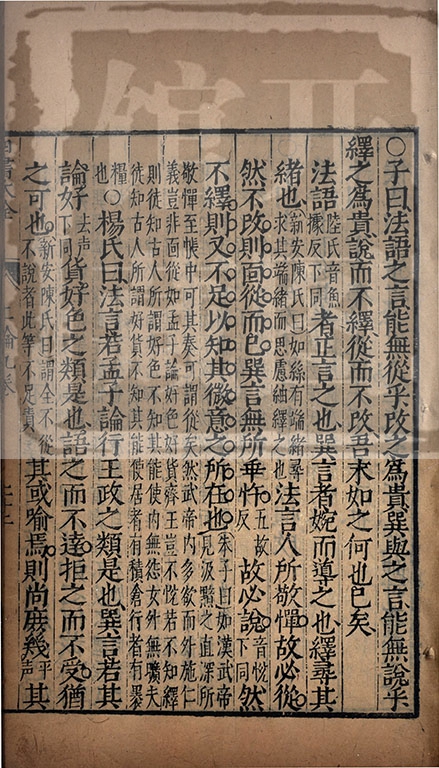 ○子曰法語之言能無從乎改之爲貴巽與之言能無說乎
繹之爲貴說而不繹從而不改吾末如之何也已矣
法語陸氏音魚據反下同者正言之也巽言者婉而導之也繹尋其
緒也新安陳氏曰如絲有端緒尋求其端緒而思慮紬繹之也法言人所敬憚故必從
然不改則面從而已巽言無所乖忤五故反故必說音悅下同然
不繹則又不足以知其微意之所在也朱子曰如漢武帝見汲黯之直深所
敬憚至帳中可其奏可謂從矣然武帝内多欲而外施仁
義豈非面從如孟子論好色好貨齊王豈不悅若不知繹
則徒知古人所謂好色不知其能使内無怨女外無曠夫
徒知古人所謂好貨不知其能使居者有積倉行者有裹
糧也○楊氏曰法言若孟子論行王政之類是也巽言若其
論好去聲下同貨好色之類是也語之而不達拒之而不受猶
之可也新安陳氏曰謂全不從不說者此等不足責其或喻焉則尚庶幾平聲其